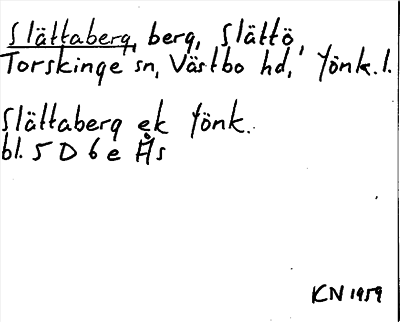 Slättaberg, berg, Slättö,
Torskinge sn, Västbo hd, Jönk. l.
Slättaberg ek Jönk.
bl. 5 D 6 e Ås
KN 1959